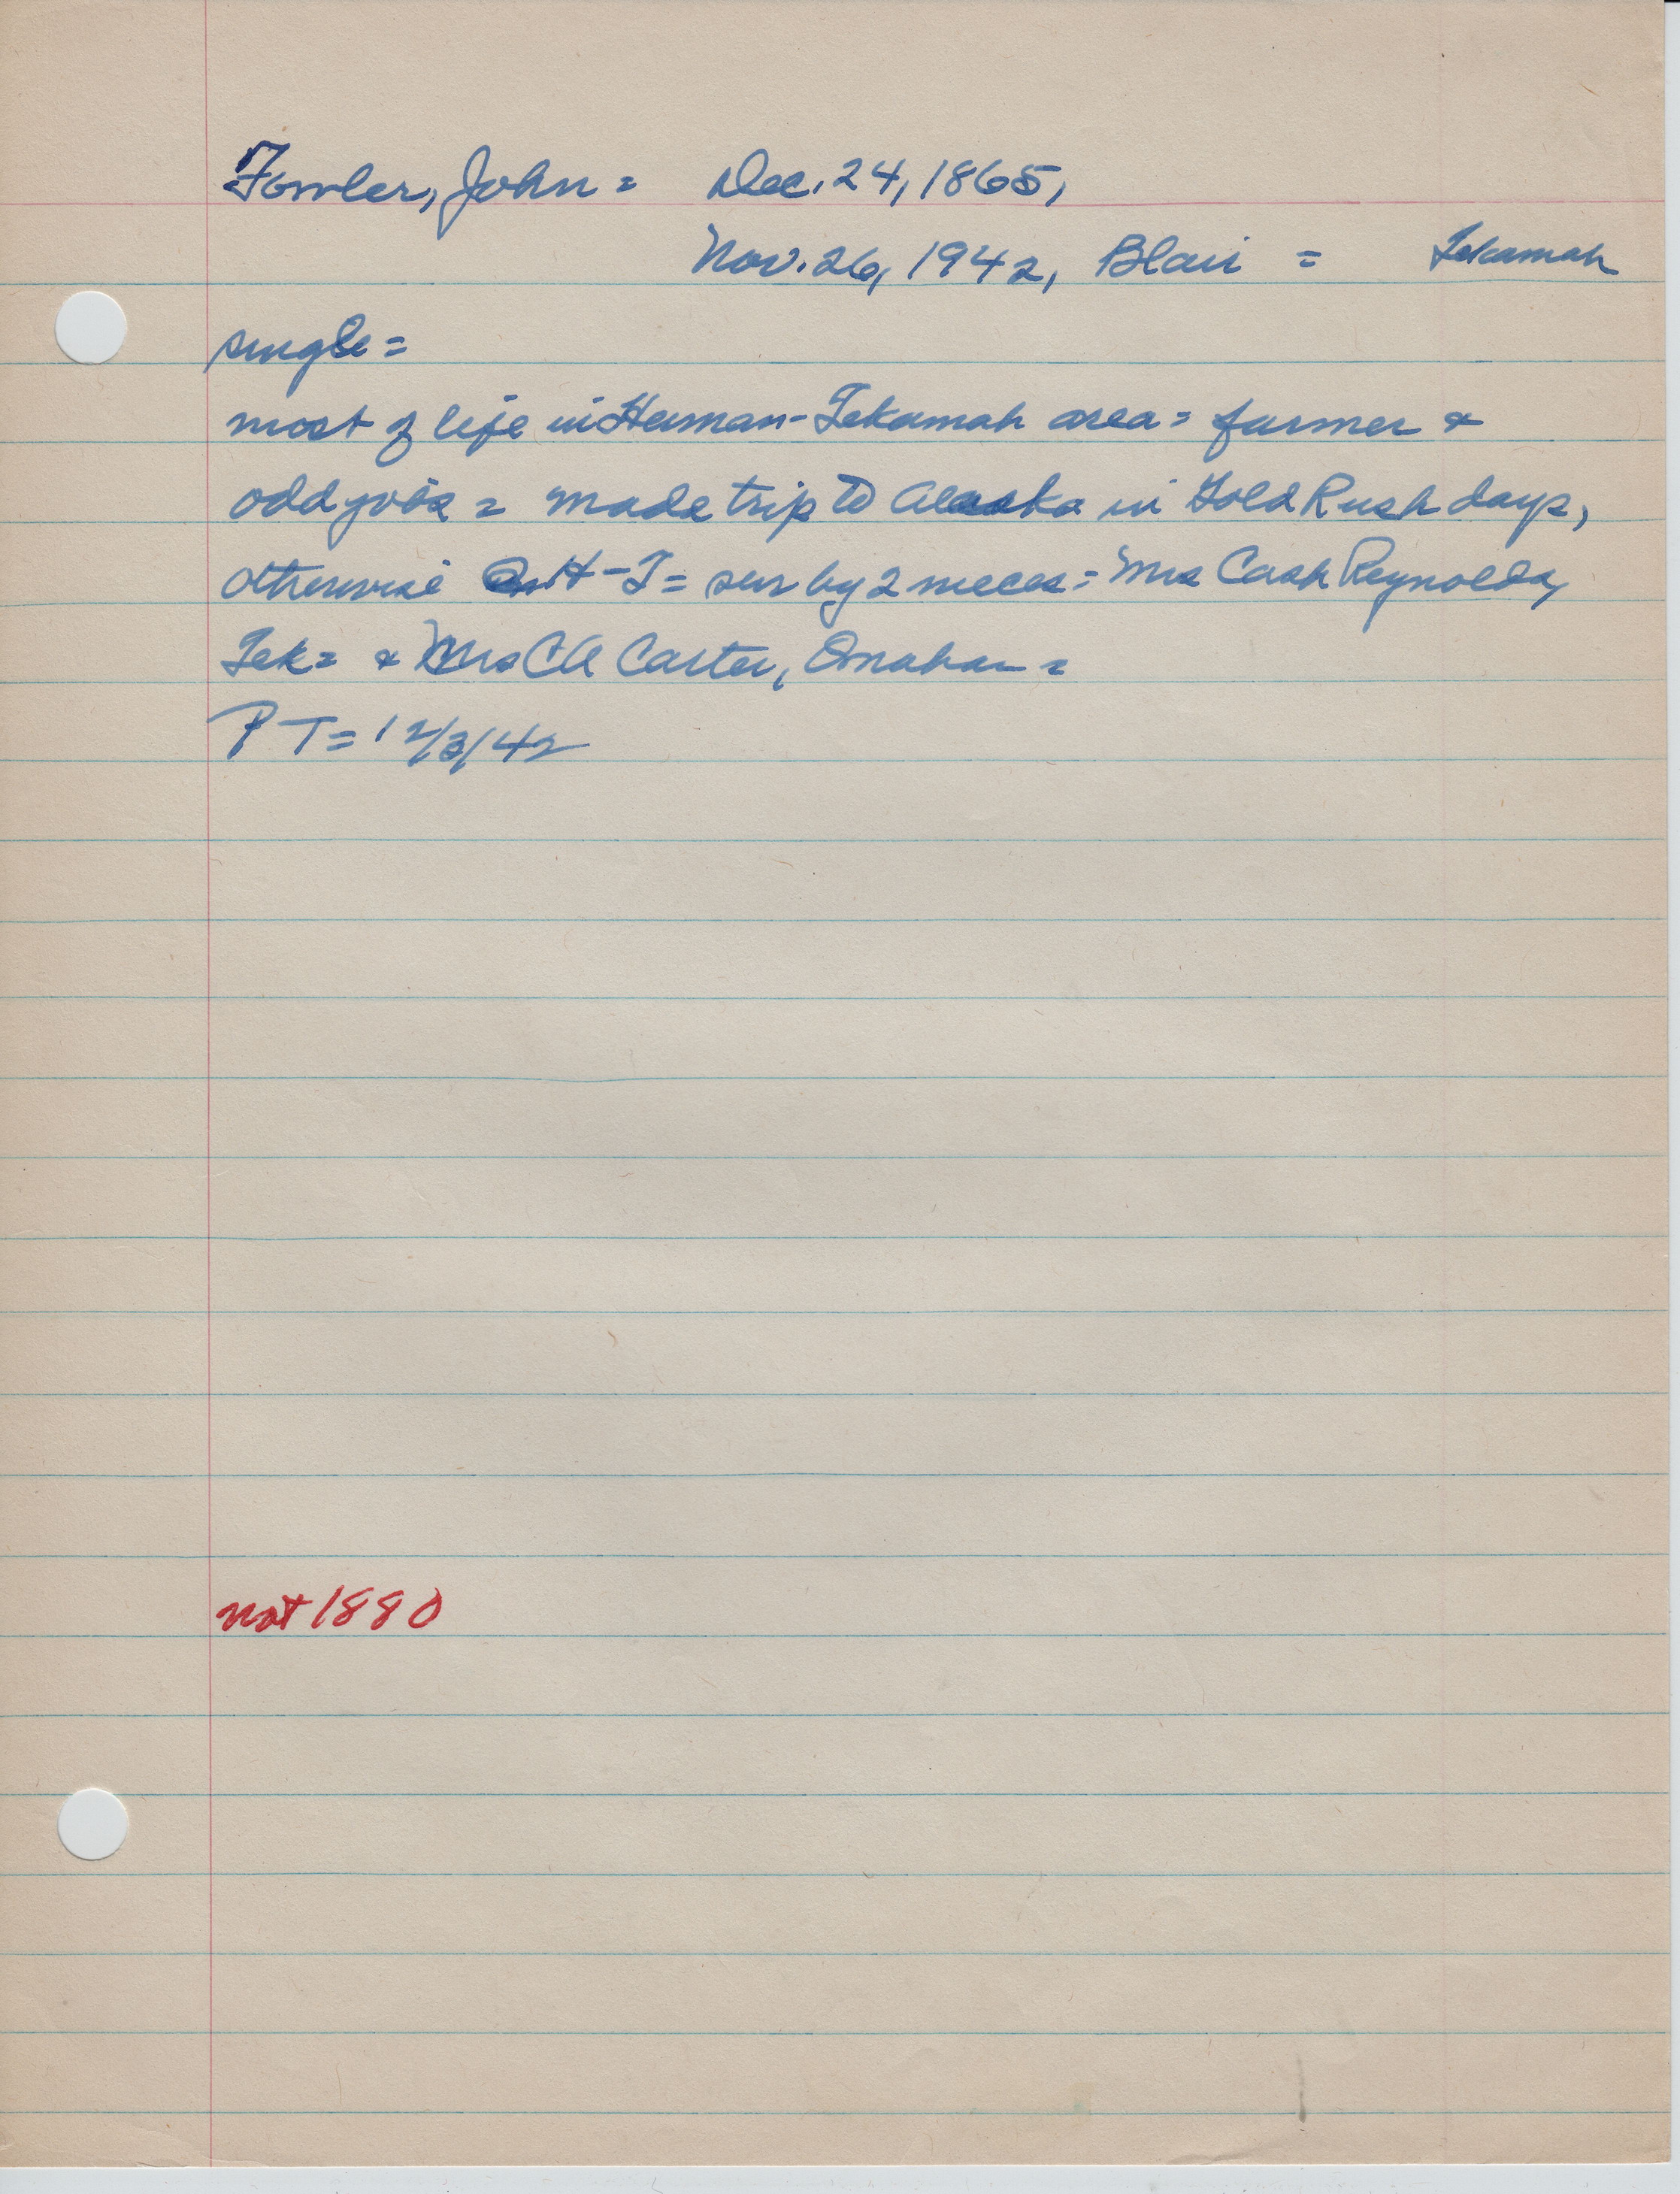 Fowler, John = Dec. 24, 1865,
Nov. 26, 1942, Blair = Tekamah
single =
most of life in Herman-Tekamah area = farmer &
odd jobs = made trip to Alaska in Gold Rush days,
otherwise in H-T = sur by 2 nieces = Mrs Cash Reynolds,
Tek = & Mrs CA Carter, Omaha =
PT = 12/3/42
not 1880